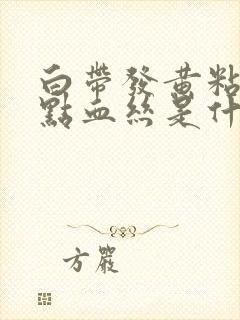 白帶發黃粘
點血絲是什
方嚴